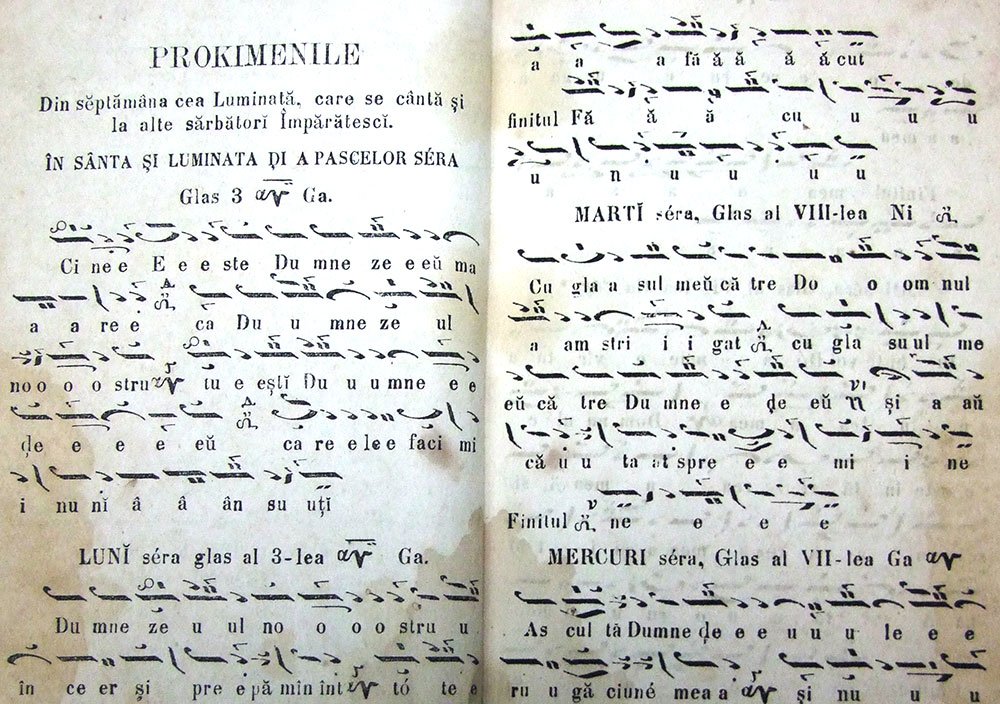 PROKIMENILE
Din sĕptămâna cea Luminată, care se cântă şi
la alte sărbătorĭ Împărătescĭ.
ÎN SÂNTA ŞI LUMINATA ḐI A PASCELOR SÉRA
Glas 3 Ga.
Ci ne e E e e ste Du mne ze e eŭ ma
a a re e ca Du u mne ze ul
no o o o stru tu e eştĭ Du u u mne e e
ḑe e e e e eŭ ca re e le e facĭ mi
i nu nĭ â â ân su uţĭ
LUNĬ séra glas al 3-lea Ga.
Du mne ze u ul no o o o stru u
în ce er şi pre e pă mîn înt tó te e
a a a fă ă ă ă ă cut
finitul Fă ă ă cu u u u
u n u u u u
MARTĬ séra, Glas al VIII-lea Ni
Cu gla a sul meŭ că tre Do o om nul
a am stri i i gat cu gla su ul me
eŭ că tre Du mne e ḑe eŭ şi a aŭ
că u u ta at spre e e mi i ne
Finitul ne e e e
MERCURI séra, Glas al VII-lea Ga
As cul tă Dumne ḑe e e u u u le e e
ru u gă ciuné mea a şi nu u u